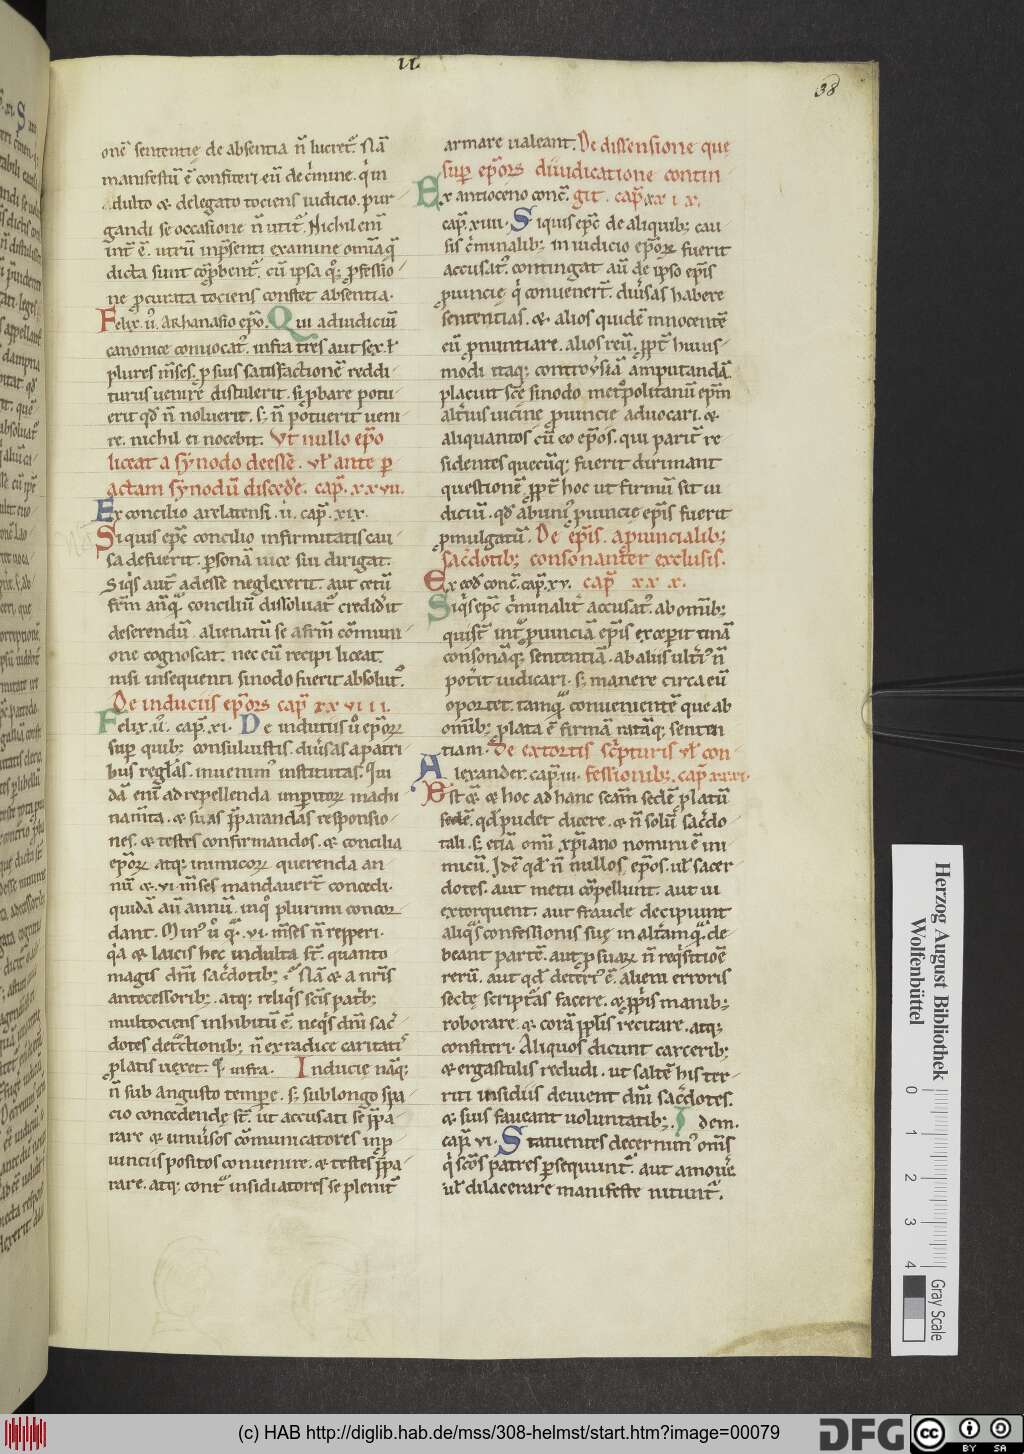 II.
38
onē sententię de absentia n̄ lucret᷑. Nā
manifestū ē confiteri eū de c̓mine. q̓ in
dulto & delegato tociens iudicio. pur
gandi se occasione n̄ utit᷑. Nichil eni͞
int̄ ē. utrū inp̄senti examine omīa q̄
dicta sunt cōp̄bent᷑. cū ipsa q̊q; p̄fessio
ne p̄curata tociens constet absentia.
Felix .ii. Athanasio ep̄o. Qui ad iudiciū
canonice conuocat᷑. infra tres aut sex. ł
plures m̄ses. p suis satisfactionē reddi
turus uenire distulerit. si p̄bare potu
erit qđ n̄ noluerit. s; n̄ potuerit ueni
re. nichil ei nocebit. Vt nullo ep̄o
liceat a synodo deesse. uł ante p
actam synodū disced̓e. cap̄. xxvii.
Ex concilio arelatensi .ii. cap̄. xix.
Si quis ep̄c concilio infirmitatis cau
sa defuerit. psonā uice sui dirigat.
Si q̓s aut̄ adesse neglexerit. aut cetū
fr̄m anq̄. conciliū dissoluat᷑ credid̓it
deserendū. alienatū se a fr̄m cōmuni
one cognoscat. nec eū recipi liceat.
nisi insequenti sinodo fuerit absolut᷒.
De induciis ep̄ors cap̄ xxviii.
Felix .ii. cap̄. xi. De indutiis ů ep̄orꝝ
sup̄ quib; consuluistis. diu̓sas a patri
bus reglās. inuenim᷒ institutas. Qui
dā eni͞ ad repellenda impitorꝝ machi
nam̄ta. & suas p̄parandas responsio
nes. & testes confirmandos. & concilia
ep̄orꝝ atq; inimicorꝝ querenda an
nū & .vi. m̄ses mandauert̄ concedi.
quidā aū annū. inq̊ plurimi concor
dant. Min᷒ ů q̄ .vi. m̄ses n̄ repperi.
q̓a & laicis hec indulta st̄. quanto
magis dn̄i sac̓dotib; Nā & a nr̄is
antecessorib; atq; reliq̓s sc̄is patb̄;
multociens inhibitū ē. neq̓s dn̄i sac̓
dotes detc̄tionib; n̄ ex radice caritati᷒
p̄latis ueret. & infra. Inducię nāq;
n̄ sub angusto tempe. s; sub longo spa
cio concedendę st̄. ut accusati se p̄pa
rare & uniu̓sos cōmunicatores inp̄
uinciis positos conuenire. & testes p̄pa
rare. atq; cont̄ insidiatores se plenit̄
armare ualeant. De dissensione que
sup̄ ep̄ors diiudicatione contin
Ex antioceno conc̄. git. cap̄ xxix.
cap̄. xiiii. Si quis ep̄c de aliquib; cau
sis c̓minalib; in iudicio ep̄orꝝ fuerit
accusat᷒. contingat aū de ipso ep̄is
p̄uincię q̓ conuenert̄. diu̓sas habere
sententias. & alios quidē innocentē
eū p̄nuntiare. alios reū. p̄pt̄ huius
modi itaq; controu̓siā amputandā.
placuit sc̄e sinodo met̊politanū ep̄m
alt̓ius uicine p̄uincie aduocari. &
aliquantos cū eo ep̄os. qui parit̄ re
sidentes quecūq; fuerit dirimant
questionē. p̄pt̄ hoc ut firmū sit iu
diciū. qđ ab uni᷒ p̄uincie ep̄is fuerit
p̄mulgatū. De ep̄is. a p̄uincialib;
sac̓dotib; consonanter exclusis.
Ex eod̄ conc̄. cap̄. xv. cap̄ xxx.
Si q̓s ep̄c c̓minalit̄ accusat᷒. ab omīb;
quist̄ int̄ p̄uinciā ep̄is exceperit unā
consonāq; sententiā. ab aliis ult̓i᷒ n̄
pot̓it iudicari. s; manere circa eū
oportet. tamq̄ conuenientē que ab
omīb; plata ē firmā ratāq; senten
tiam. De extortis sc̓pturis uł con
Alexander. cap̄. iii. fessionib;. cap̄ xxxi.
Est &̄ & hoc ad hanc sc̄am sedē p̄latū
sedē. qđ pudet dicere. & n̄ solū sac̓do
tali. s; etiā omi͞ xp̄iano nomini ē ini
micū. Idē qđ n̄ nullos. ep̄os. uł sacer
dotes. aut metu cōpellunt. aut ui
extorquent. aut fraude decipiunt
aliq̓s confessionis suę in alt̓amq̄ de
beant partē. aut p suarꝝ n̄ req̓sitioē
rerū. aut qđ deteri᷒ ē. alieni erroris
sectę scripturas facere. & p̄p̓is manib;
roborare. & corā pp̄lis recitare. atq;
confiteri. Aliquos dicunt carcerib;
& ergastulis recludi. ut saltē his ter
riti insidiis deuient dn̄i sac̓dotes.
& suis faueant uoluntatib;. Idem.
cap̄. vi. Statuentes decernim᷒ om̄s
q̓ sc̄os patres psequunt᷑. aut amou̓e
uł dilacerare manifeste nitunt᷑.
Herzog August Bibliothek
Wolfenbüttel
0 1 2 3 4
Gray Scale
(c) HAB http://diglib.hab.de/mss/308-helmst/start.htm?image=00079
DFG
CC BY SA